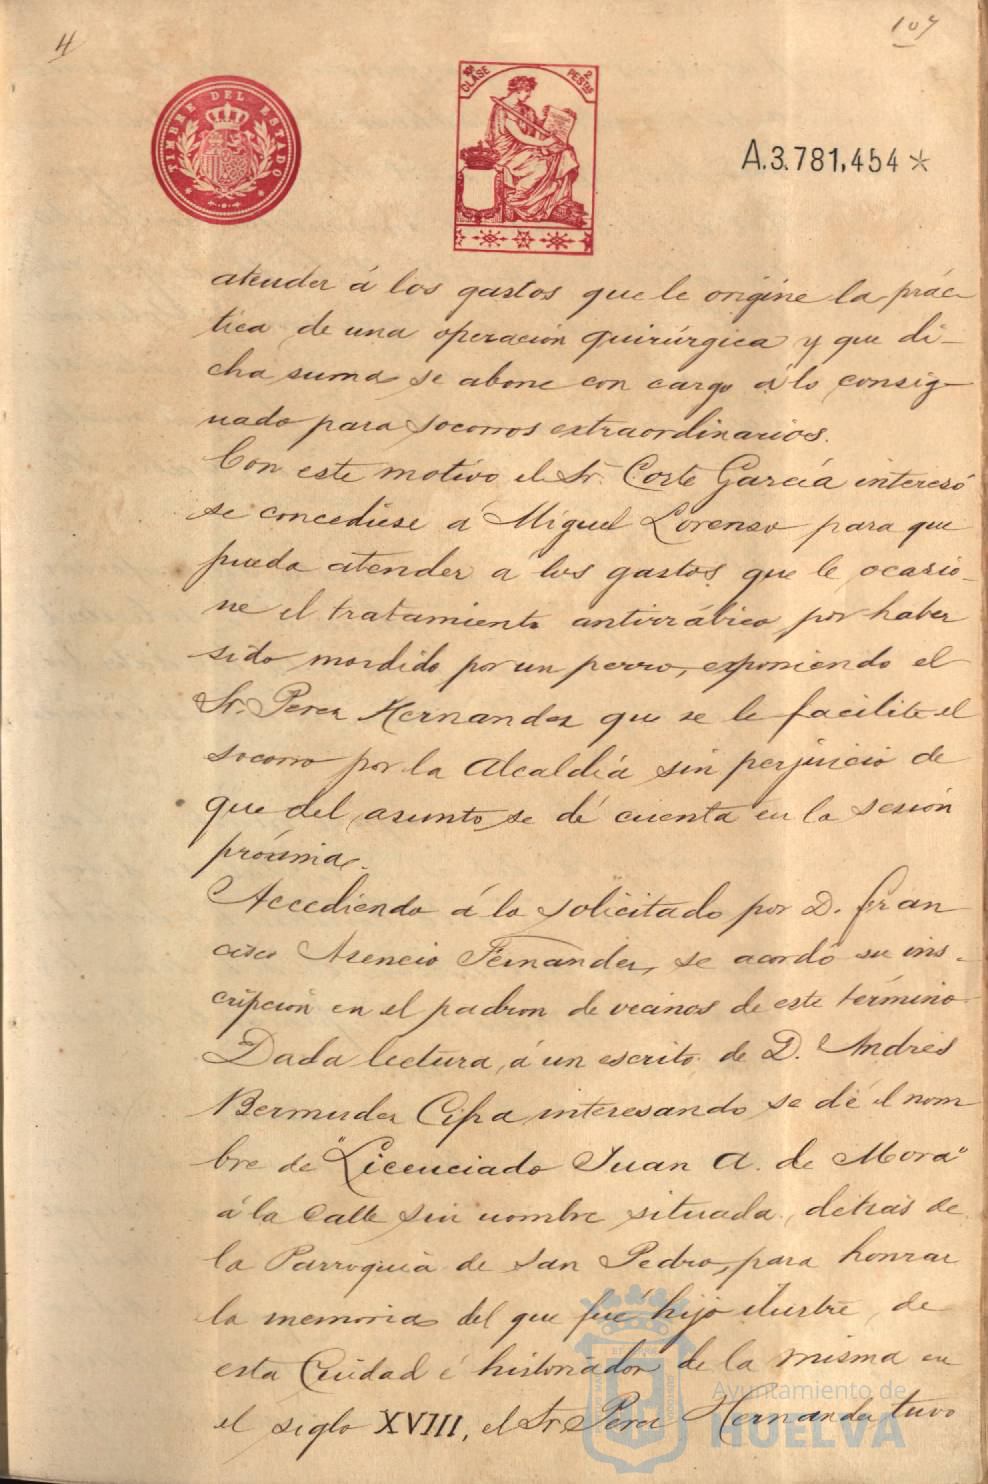 4
107
TIMBRE DEL ESTADO
10ª CLASE
2 PESTAS
A.3.781,454*
atender á los gastos que le origine la prác-
tica de una operación quirúrgica y que di-
cha suma se abone con cargo á lo consig-
nado para socorros extraordinarios.
Con este motivo el Sr. Corte García interesó
se concediese á Miguel Lorenzo para que
pueda atender á los gastos que le ocasio-
ne el tratamiento antirrábico por haber
sido mordido por un perro, exponiendo el
Sr. Perez Hernandez que se le facilite el
socorro por la Alcaldía sin perjuicio de
que del asunto se dé cuenta en la sesión
próxima.
Accediendo á lo solicitado por D. Fran
cisco Asencio Fernandez, se acordó su ins-
cripción en el padron de vecinos de este término
Dada lectura á un escrito de D. Andrés
Bermudez Cipa interesando se dé el nom
bre de "Licenciado Juan A. de Mora"
á la Calle sin nombre situada detrás de
la Parroquia de San Pedro, para honrar
la memoria del que fué hijo ilustre de
esta Ciudad é historiador de la misma en
el siglo XVIII, el Sr. Perez Hernandez tuvo
Ayuntamiento de
HUELVA